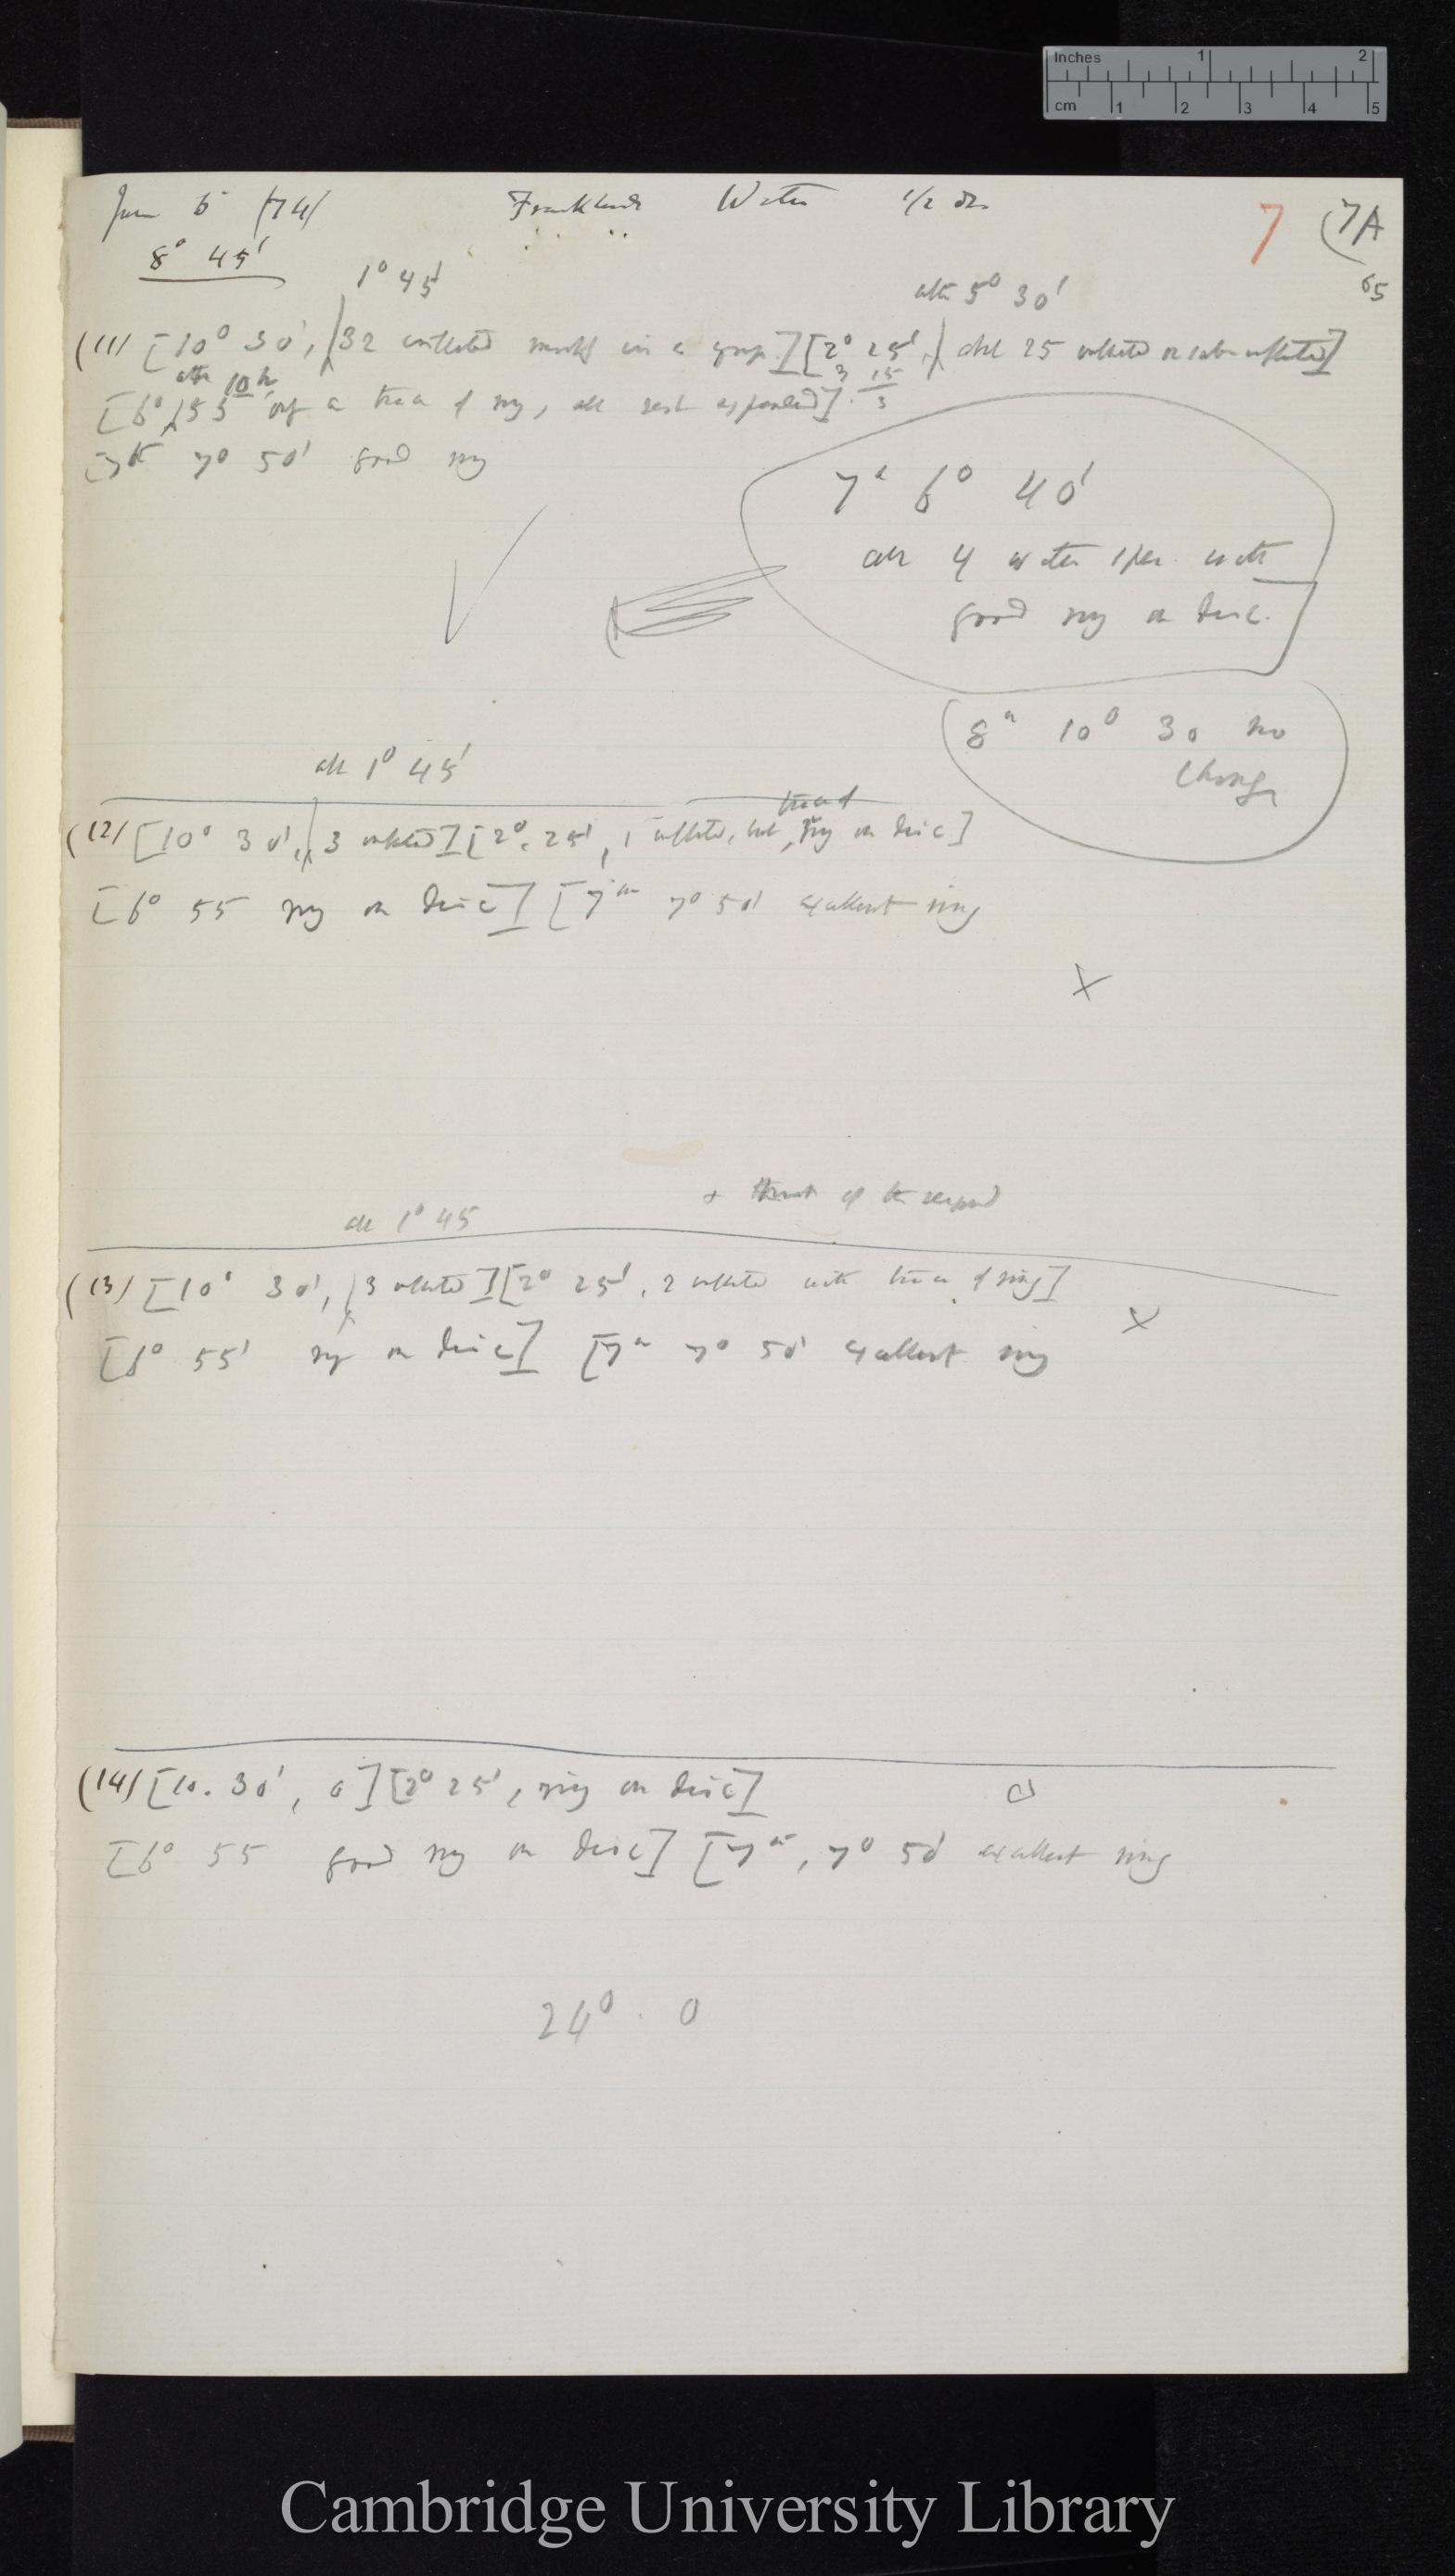 Inches 1 2
cm 1 2 3 4 5
June 6 (74) Frankland Water 1/2 oz
7 (7A
65
8° 45'
1° 45'
after 5° 30'
(11) [10° 30', 32 inflected in a group] [2° 25', 25 inflected or sub-inflected]
after 10 h
3 15/3
[6° 55' only a trace of ring, all rest expanded]
[7th 7° 50' good ring
7th 6° 40'
all 4 water with
good ring on disc.
8th 10° 30 no
change
after 1° 45'
trace of
(12) [10° 30', 3 inflected] [2°. 25', 1 inflected, but ring on disc]
[6° 55 ring on disc] [7th 7° 50' excellent ring
X
+ of the
after 1° 45
(13) [10° 30', 3 inflected] [2° 25', 2 inflected with trace of ring]
X
[6° 55' ring on disc] [7th 7° 50' excellent ring
(14) [10. 30', 0] [2° 25', ring on disc]
[6° 55 good ring on disc] [7th, 7° 50' excellent ring
24° . 0
Cambridge University Library